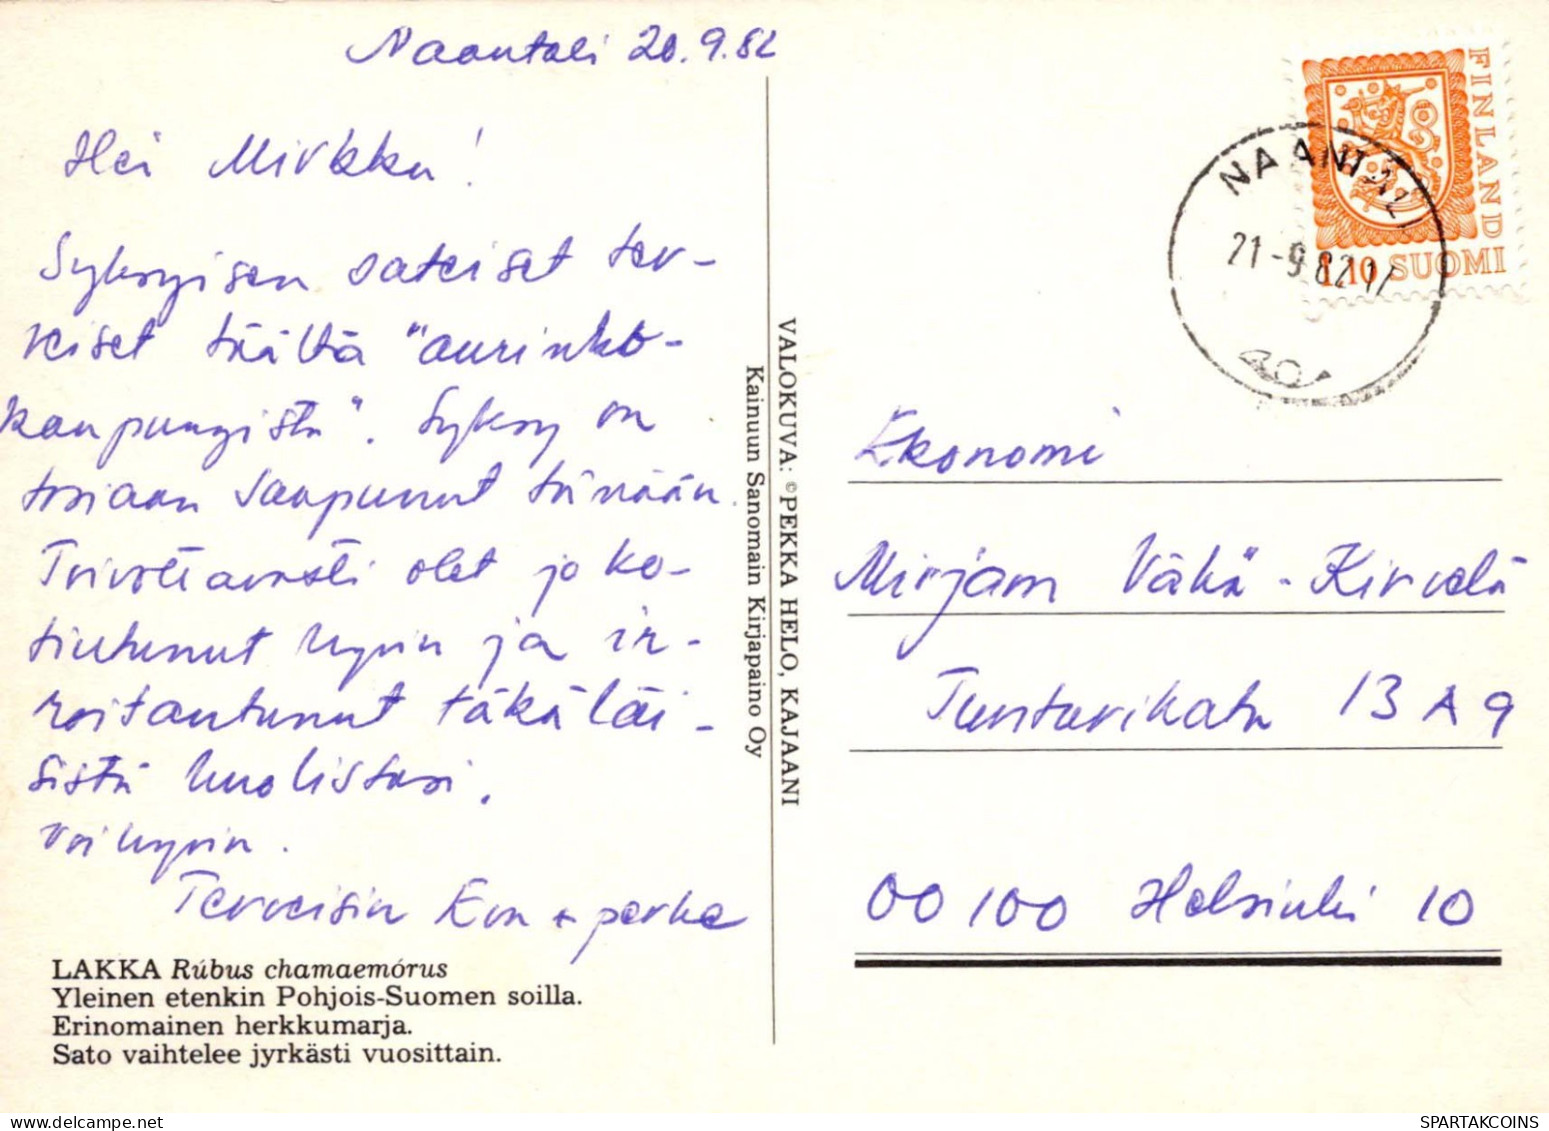 Naantali 20.9.82
Hei Mirkku!
Syksyisen sateiset ter-
veiset täältä "aurinko-
kaupungista". Syksy on
tosiaan saapunut tänään.
Toivottavasti olet jo ko-
tiutunut hyvin ja ir-
roitautunut täkäläi-
sistä huolistasi.
Voi hyvin.
Terveisin + perhe
LAKKA Rúbus chamaemórus
Yleinen etenkin Pohjois-Suomen soilla.
Erinomainen herkkumarja.
Sato vaihtelee jyrkästi vuosittain.
VALOKUVA: © PEKKA HELO, KAJAANI
Kainuun Sanomain Kirjapaino Oy
FINLAND
1,10 SUOMI
NAANTALI
21-9.82 17
Ekonomi
Mirjam Vähä-Kirvelä
Tunturikatu 13 A 9
00100 Helsinki 10
SPARTAKCOINS